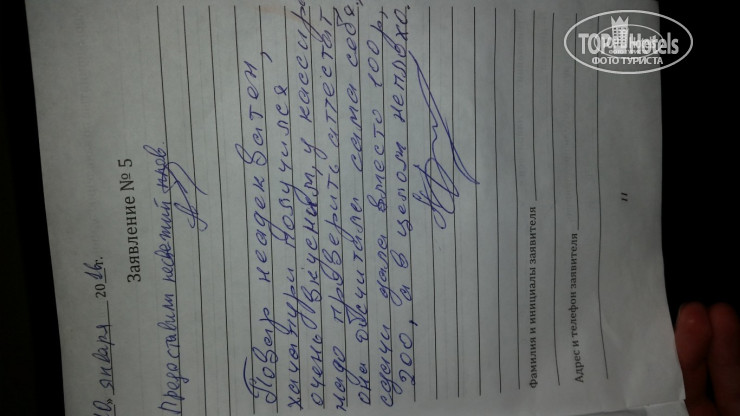 10. января 2016г.
Заявление № 5
Предоставили несвежий плов.
Повар неадекватен,
хачапури получился
очень вкусным, у кассира
надо проверить аттестат
она обсчитала сама себя,
сдачи дала вместо 100р,
200, а в целом неплохо.
Фамилия и инициалы заявителя
Адрес и телефон заявителя
11
TOP Hotels
ФОТО ТУРИСТА